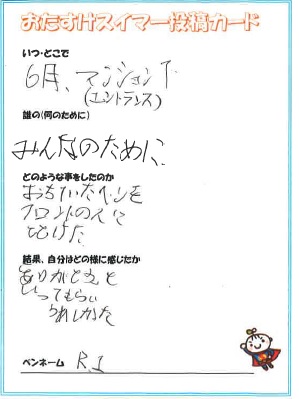 おたすけスイマー投稿カード
いつ・どこで
6月、マンション下
(エントランス)
誰の(何のために)
みんなのために
どのような事をしたのか
おちていたペンを
フロントの人に
とどけた
結果、自分はどの様に感じたか
ありがとうと
いってもらい
うれしかった
ペンネーム R.I